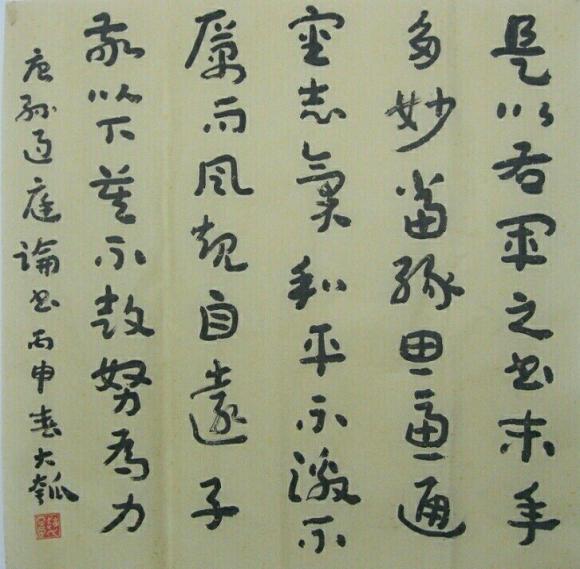 是以右軍之書末年
多妙當緣思慮通
審志氣和平不激不
厲而風規自遠子
敬以下莫不鼓努為力
唐孫過庭論書丙申春大瓠